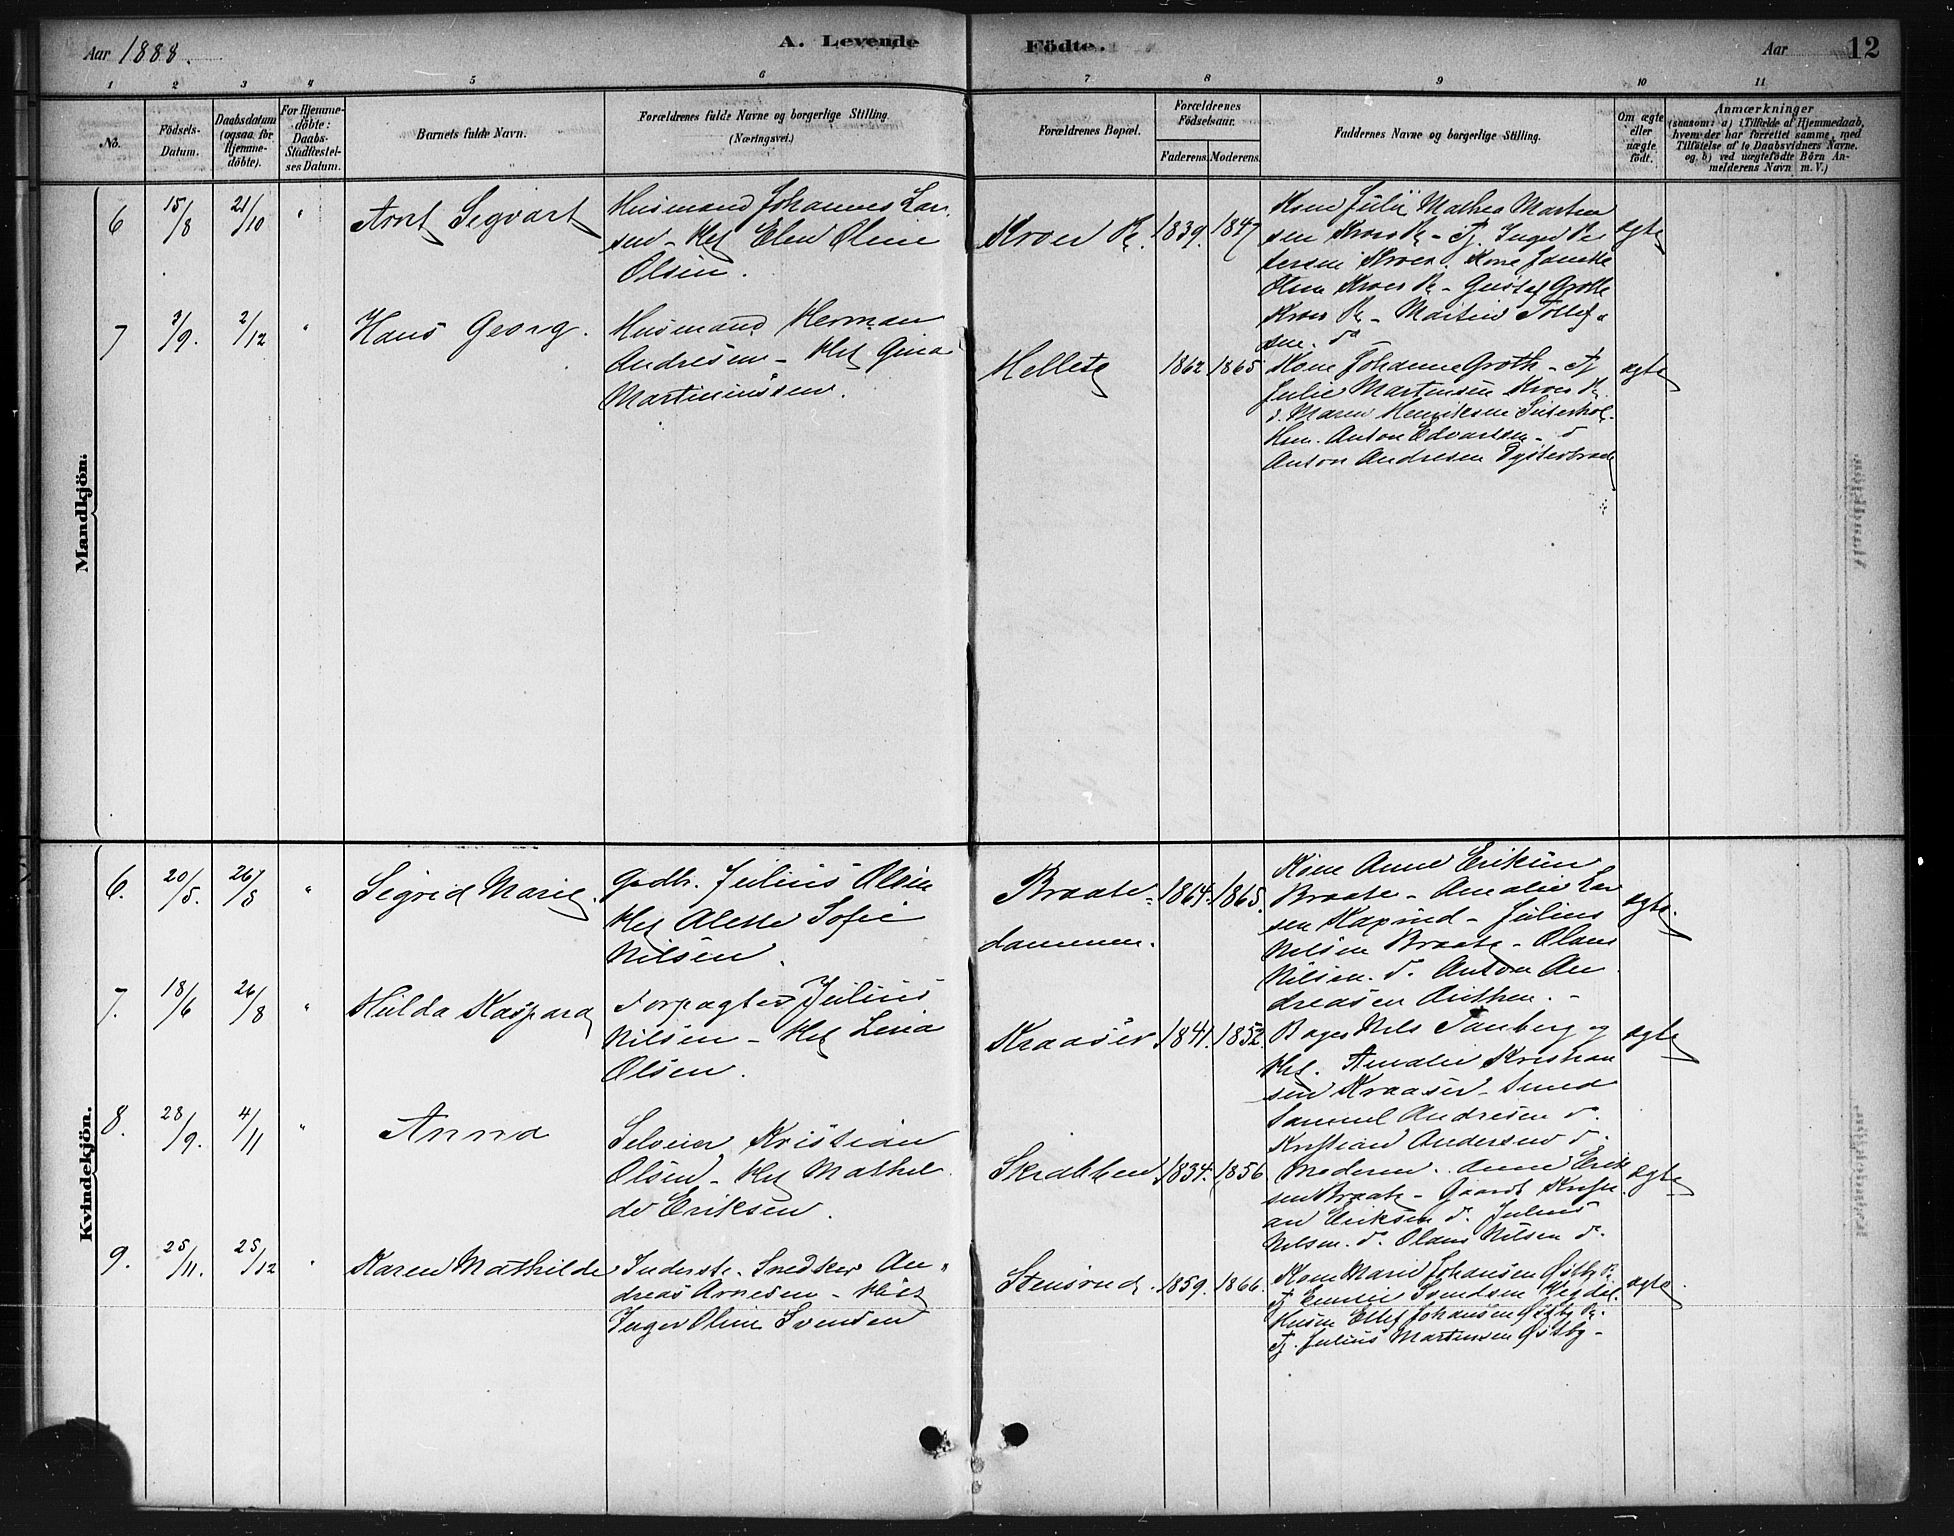 Aar 1888.
A. Levende
Födte.
Aar
12
1 2 3 4 5 6 7 8 9 10 11
No.
Födsels-
Datum.
Daabsdatum
(ogsaa for
Hjemme-
døbte).
For Hjemme-
døbte:
Daabs-
Stadfæstel-
ses Datum.
Barnets fulde Navn.
Forældrenes fulde Navne og borgerlige Stilling
(Næringsvei.)
Forældrenes Bopæl.
Forældrenes
Födselsaar.
Faderens. Moderens.
Faddernes Navne og borgerlige Stilling.
Om ægte
eller
uægte
født.
Anmærkninger
(saasom: a) i Tilfælde af Hjemmedaab,
hvem der har forrettet samme, med
Tilføielse af to Daabsvidners Navne.
og b) ved uægtefødte Børn An-
melderens Navn m. V.)
Mandkjön.
6 15/8 21/10 " Arnt Segvart
Husmand Johannes Lar-
sen - Hst Elen Oline
Olsen.
Kroer Pl. 1839. 1847
Kone Julie Mathea Marten
sen Kroer Pl - Tj. Inger Pe
dersen Kroer. Kone Janette
Olsen Kroer Pl - Gustaf Groth
Kroer Pl - Martin Tollef-
sen. do
ægte
7 3/9. 2/12 " Hans Georg.
Husmand Herman
Andresen - Hst Gina
Martinussen.
Helleste 1862 1865
Kone Johanne Groth - Tj
Julie Martensen Kroer Pl.
d. Maren Henriksen
Anton Edvardsen - d
Anton Andresen Dysterbraate
ægte
Kvindekjön.
6. 20/5. 26/8 " Sigrid Marie.
Gadb. Julius Olsen
Hst Alette Sofie
Nilsen.
Braate-
dammen. 1864. 1865.
Kone Anne Eriksen
Braate - Amalie Lar
sen - Julius
Nilsen Braate - Olaus
Nilsen. d. Anton An
dreasen
ægte.
7. 18/6 26/8 " Hulda Kaspara
Forpagter Julius
Nilsen - Hst Lina
Olsen.
Kraaser 1841. 1852.
Bager Nils Tanberg og
Hst. Amalie Kristian
sen Kraaser - Smed
Samuel Andresen d.
Kristian Andersen d.
ægte
8. 28/9. 4/11 " Anna
Selveier Kristian
Olsen - Hst Mathil
de Eriksen.
Skrabben 1834. 1856
Moderen. Anne Erik
sen Braate - Gaardb Kristi
an Eriksen d. Julius
Nilsen. d. Olaus Nilsen d.
ægte
9. 25/11. 25/12 " Karen Mathilde
Inderst. Snedker An-
dreas Arnesen - Hst
Inger Oline Svensen
Stensrud. 1859. 1866.
Kone Marie Johansen Østby Pl
Tj Emilie Svendsen
Husm Ellef Johansen Østby Pl.
Tj. Julius Martensen Østby -
ægte.